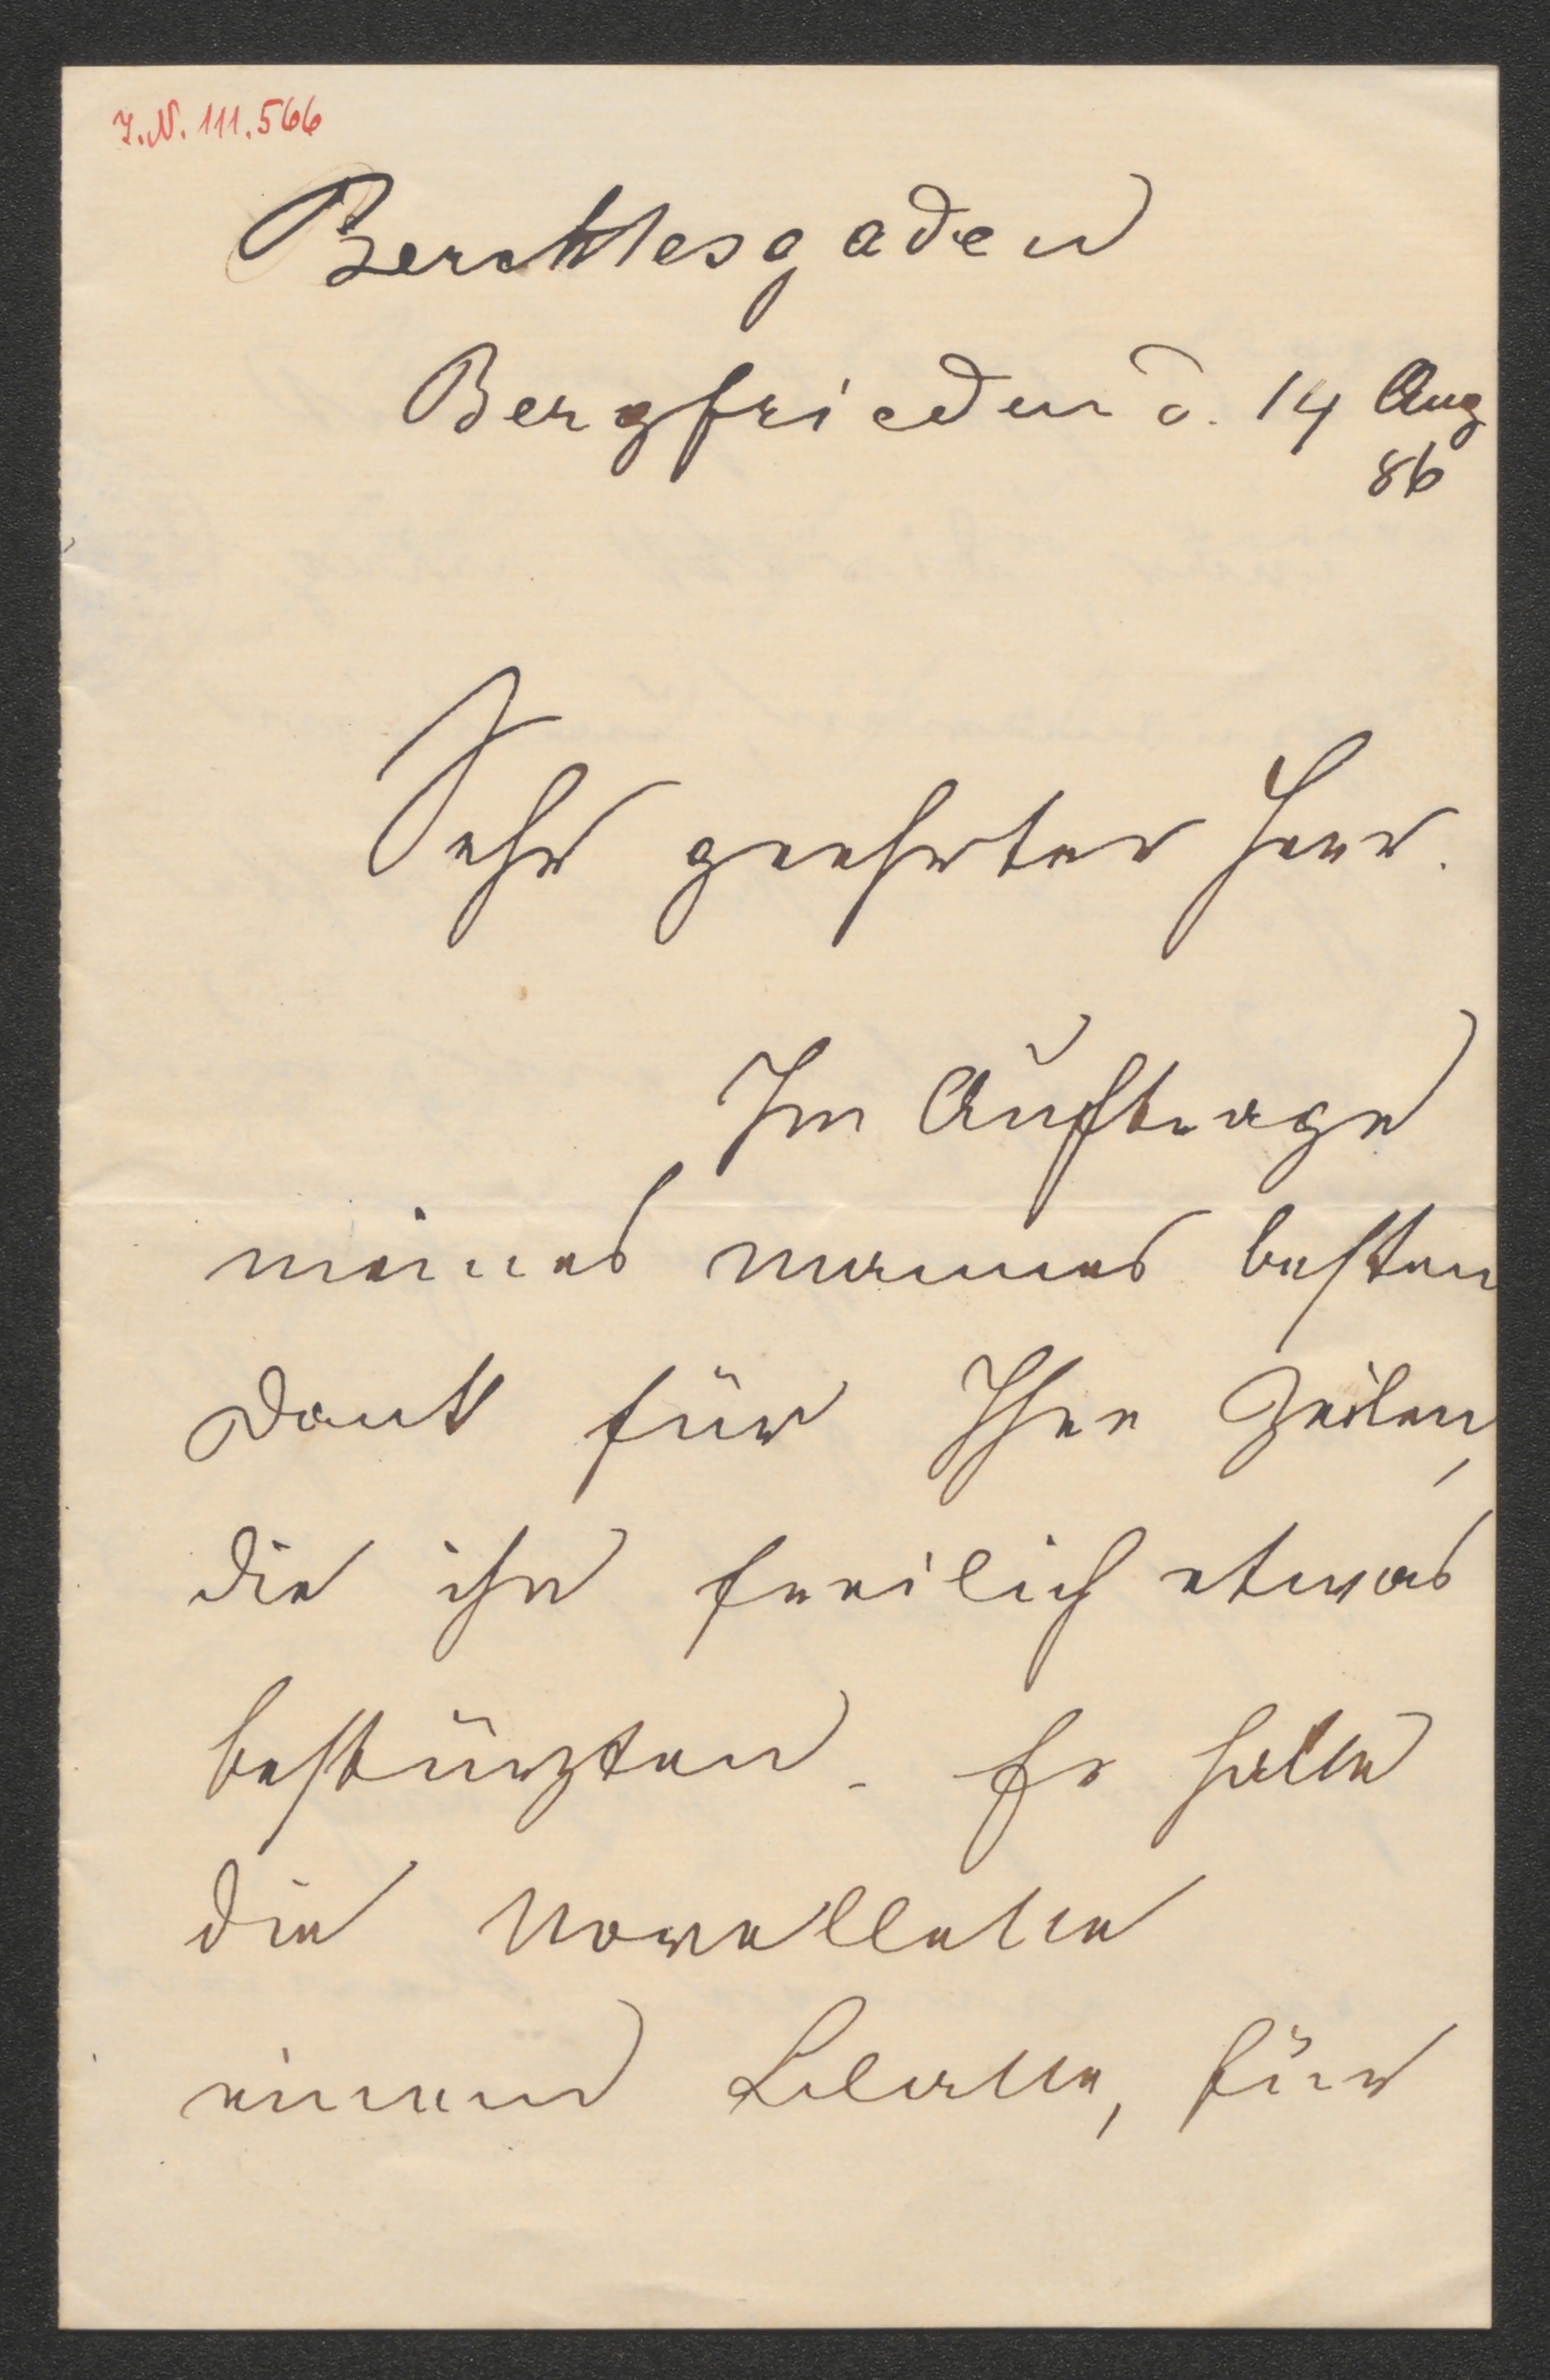 I.N. 111.566
Berchtesgaden
Bergfrieden d. 14 Aug
86
Sehr geehrter Herr.
Im Auftrage
meines Mannes besten
Dank für Ihre Zeilen,
die ihn freilich etwas
bestürzten. Er hatte
die Novellette
einem Blatte, für